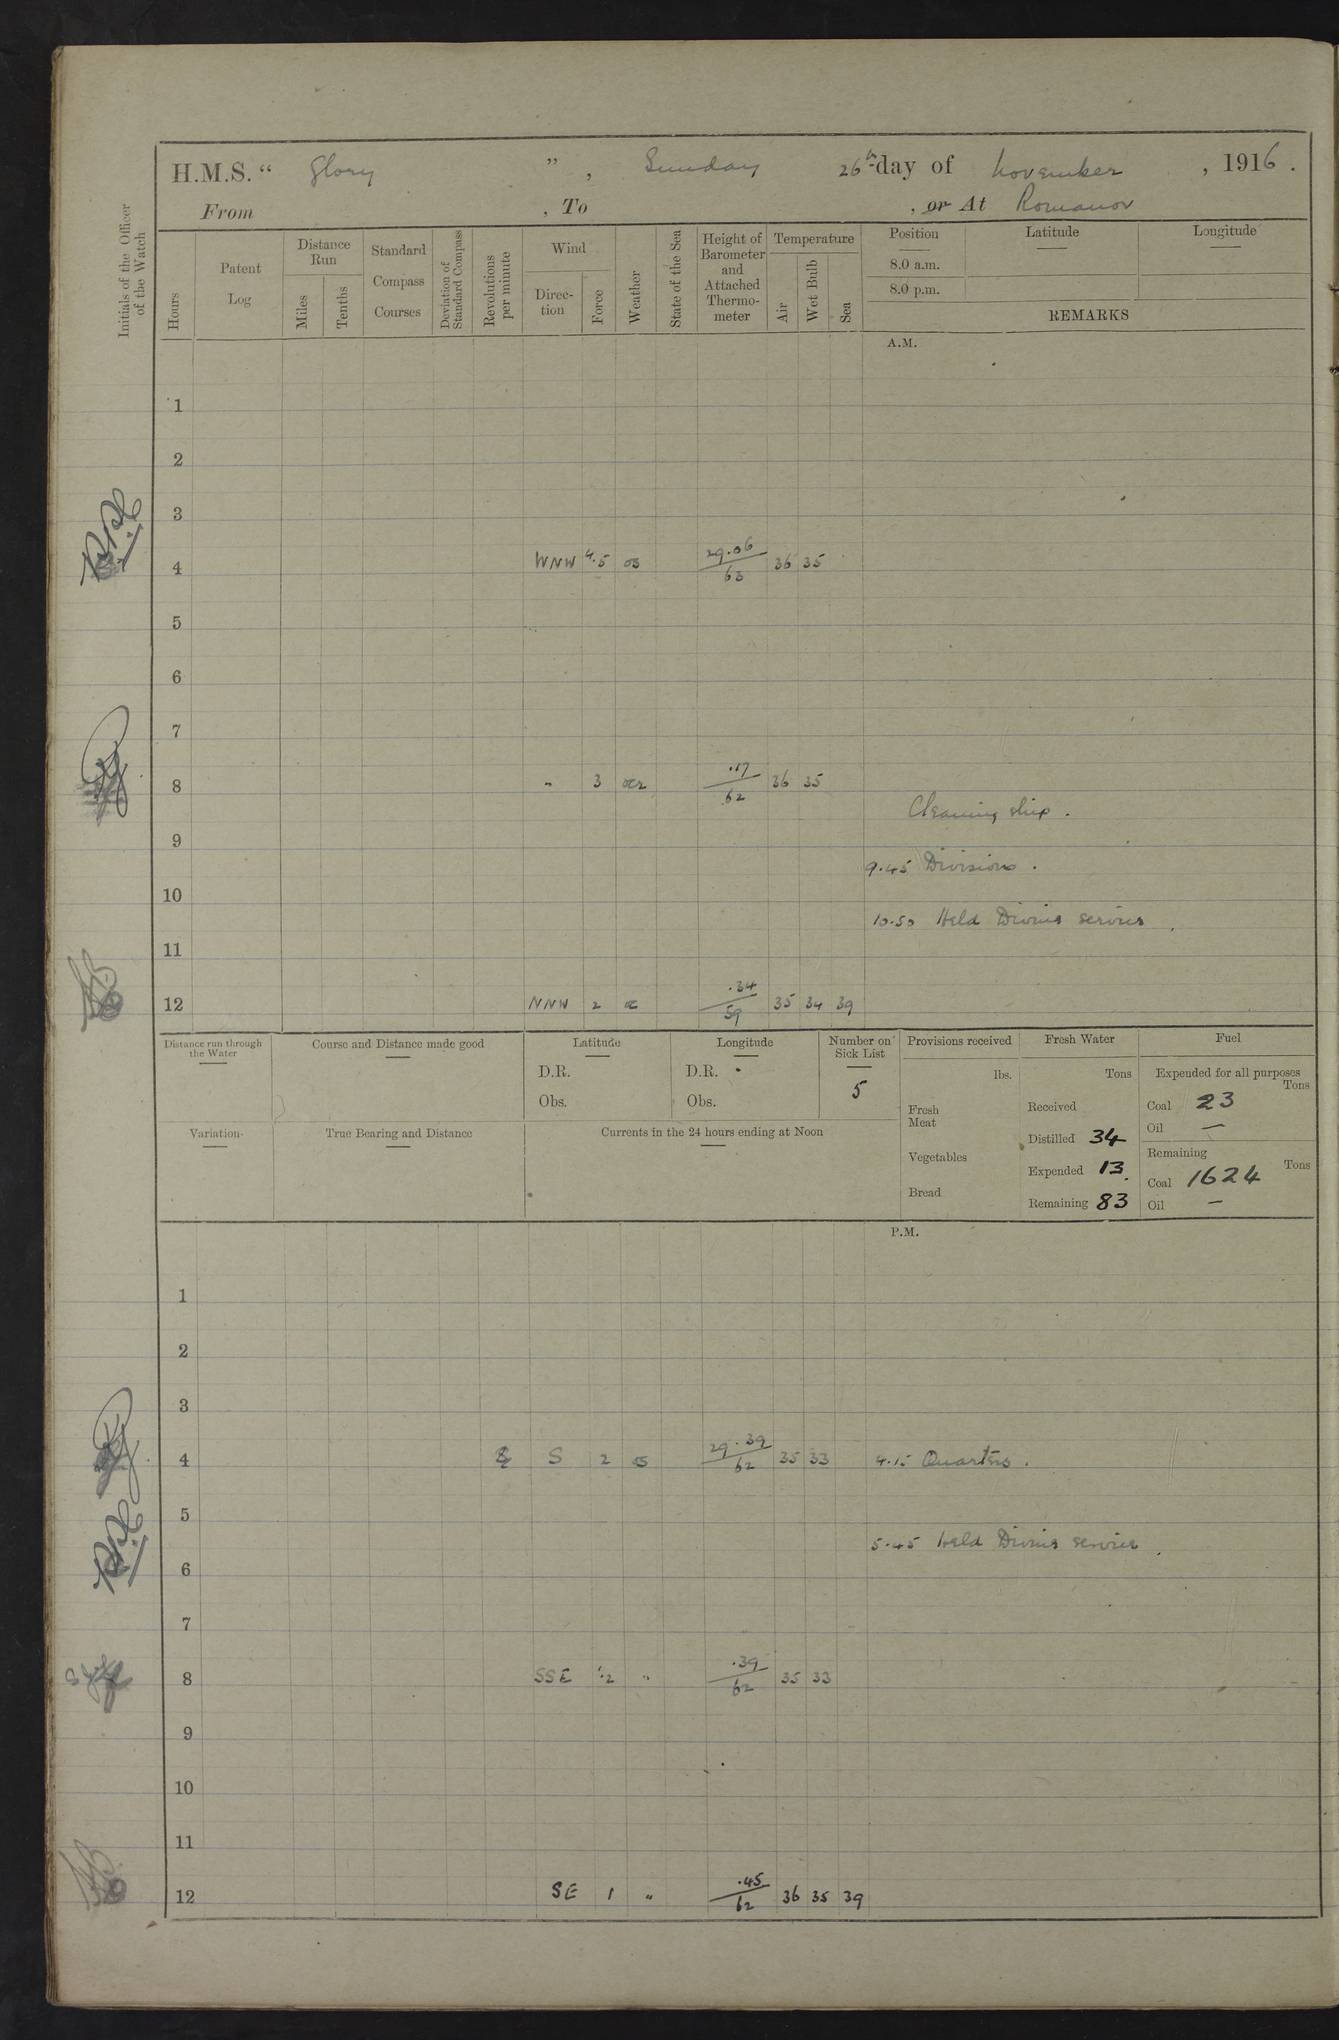 H.M.S. “ Glory ” , Sunday 26th day of November , 1916 .
From , To , or At Romanov
Initials of the Officer of the Watch
Hours
Patent Log
Distance Run
Miles
Tenths
Standard Compass Courses
Deviation of Standard Compass
Revolutions per minute
Wind
Direc- tion
Force
Weather
State of the Sea
Height of Barometer and Attached Thermo- meter
Temperature
Air
Wet Bulb
Sea
Position
8.0 a.m.
8.0 p.m.
Latitude
Longitude
REMARKS
A.M.
1
2
3
4 WNW 4.5 29.06 63 36 35
5
6
7
8 " 3 .17 62 36 35
Cleaning ship .
9
9.45 Divisions .
10
10.50 Held Divine service .
11
12 NNW 2 .34 59 35 34 39
Distance run through the Water
Course and Distance made good
Latitude
D.R.
Obs.
Longitude
D.R.
Obs.
Number on Sick List
5
Provisions received
lbs.
Fresh Meat
Vegetables
Bread
Fresh Water
Tons
Received
Distilled 34
Expended 13
Remaining 83
Fuel
Expended for all purposes
Tons
Coal 23
Oil —
Remaining
Tons
Coal 1624
Oil —
Variation
True Bearing and Distance
Currents in the 24 hours ending at Noon
P.M.
1
2
3
4 S 2 29.39 62 35 33 4.15 Quarters .
5
5.45 Held Divine service .
6
7
8 SSE 1.2 " .39 62 35 33
9
10
11
12 SE 1 " .45 62 36 35 39